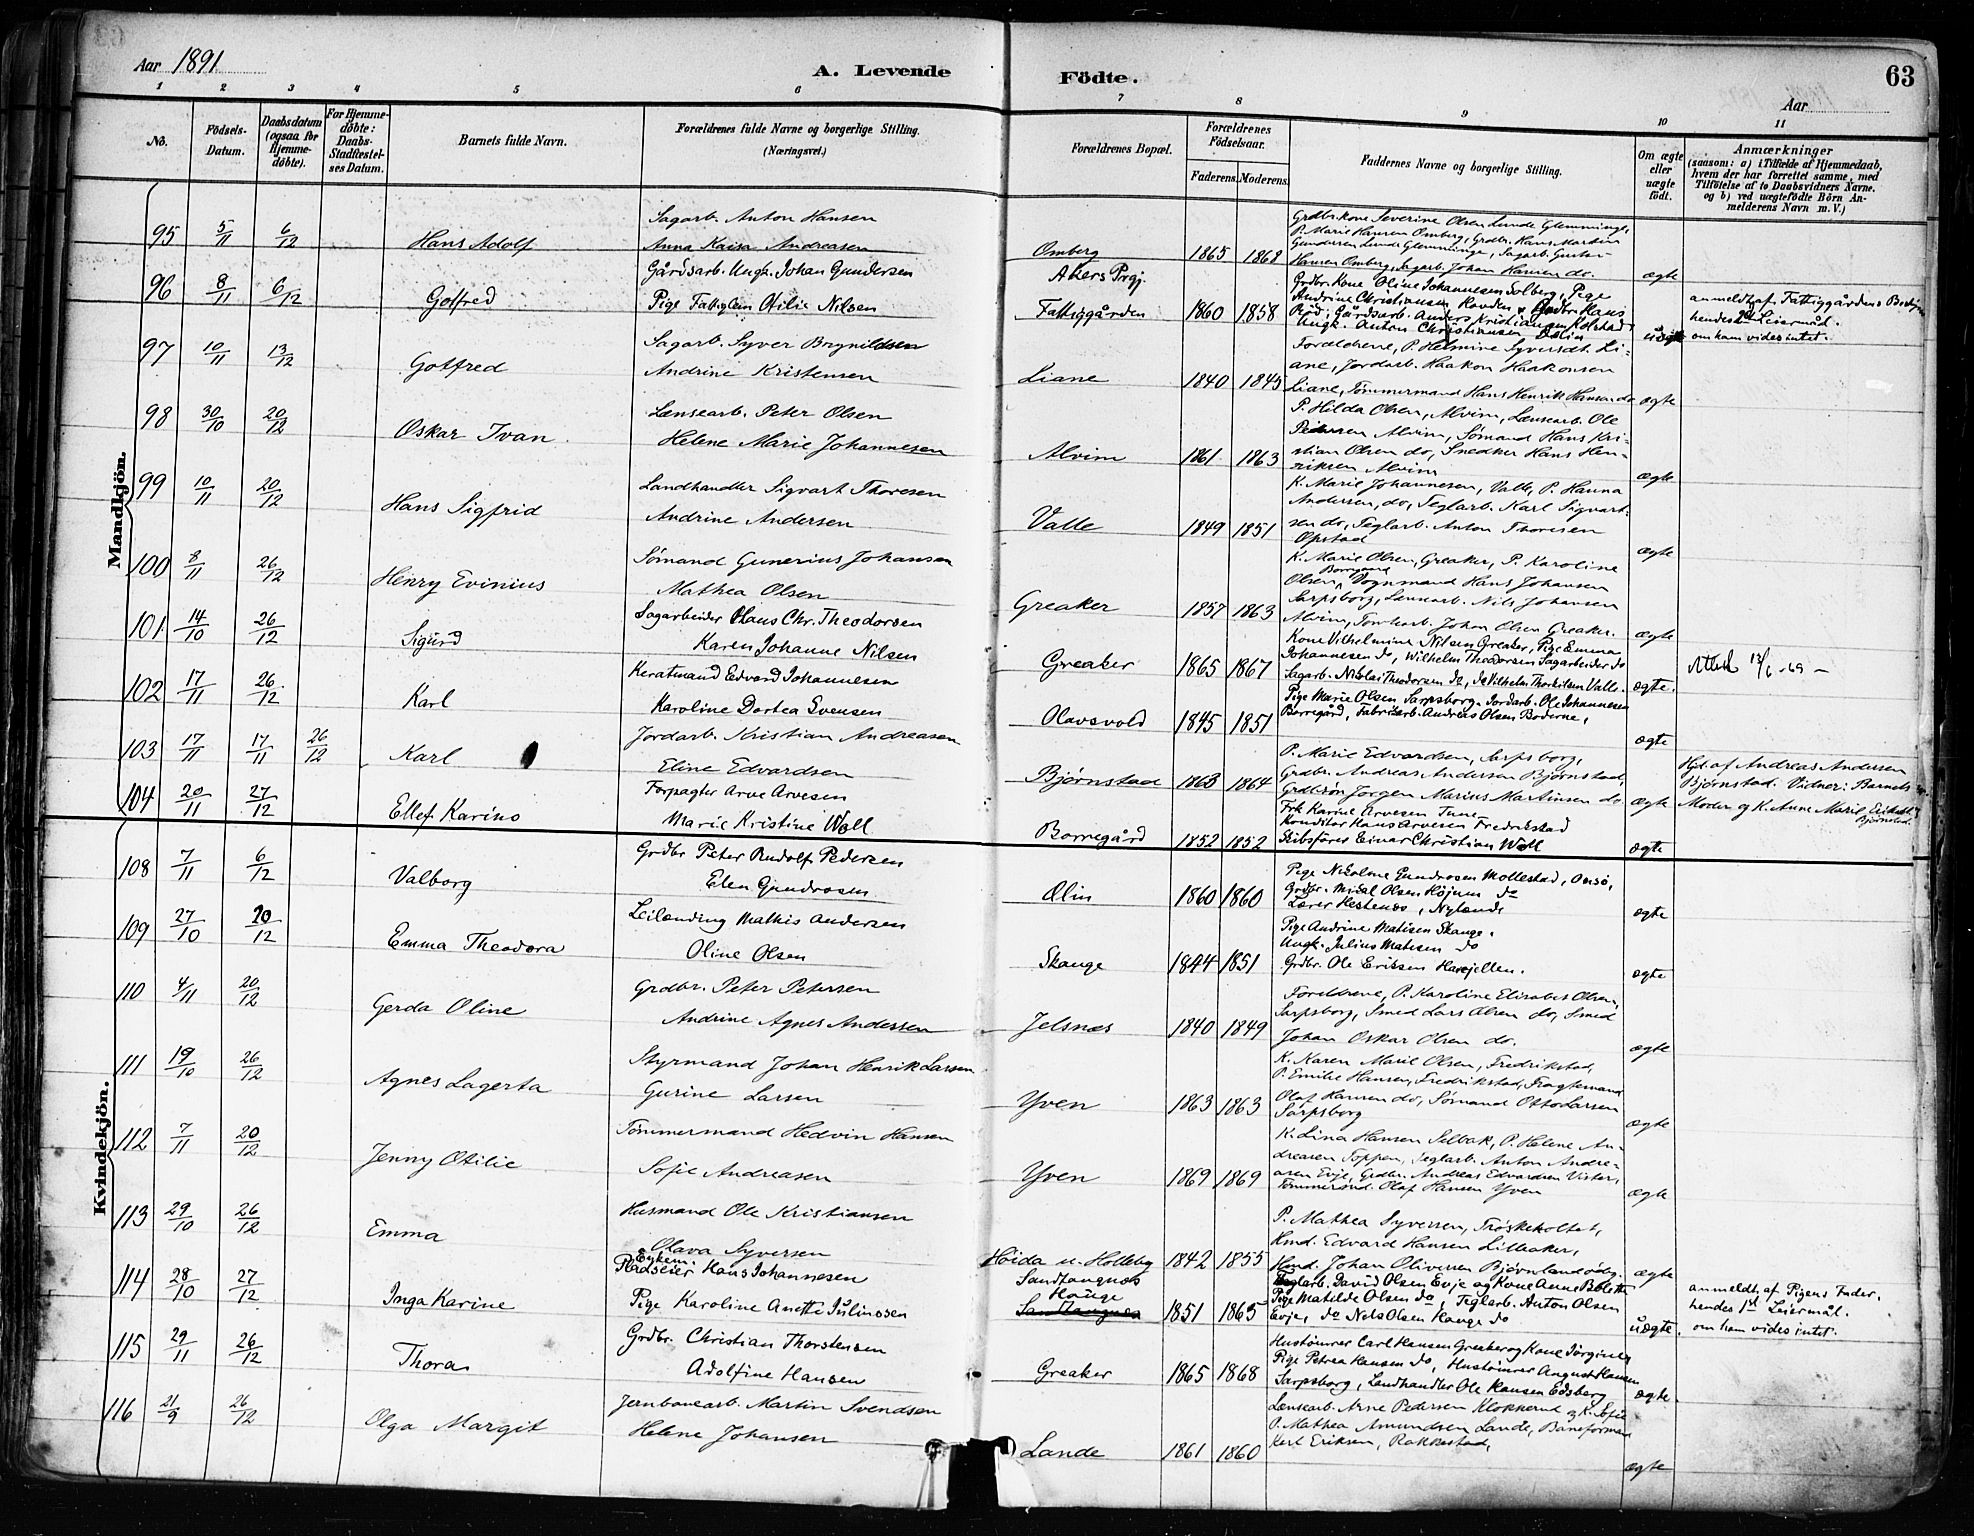 Aar 1891
A. Levende
Födte.
63
Aar
1 2 3 4 5 6 7 8 9 10 11
No.
Födsels-Datum.
Daabsdatum (ogsaa for Hjemme-döbte).
For Hjemme-döbte: Daabs-Stadfæstel-ses Datum.
Barnets fulde Navn.
Forældrenes fulde Navne og borgerlige Stilling.
(Næringsvei.)
Forældrenes Bopæl.
Forældrenes Födselsaar.
Faderens. Moderens.
Faddernes Navne og borgerlige Stilling.
Om ægte eller uægte födt.
Anmærkninger
(saasom: a) i Tilfælde af Hjemmedaab, hvem der har forrettet samme, med Tilföielse af to Daabsvidners Navne. og b) ved uægtefödte Börn An-melderens Navn m. V.)
Mandkjön.
95 5/11 6/12 Hans Adolf
Sagarb. Anton Hansen
Anna Kaisa Andreasen
Omberg 1865 1868
Grdbr.kone Severine Olsen Lunde Glemminge,
P. Marie Hansen Omberg, Grdbr. Hans Martin
Gundersen Lunde Glemminge, Sagarb. Gustav
Hansen Omberg, Sagarb. Johan Hansen do.
ægte
96 8/11 6/12 Gotfred
Gårdsarb. Ungk. Johan Gundersen
Pige Fattiglem Otilie Nilsen
Akers Prgj.
Fattiggården 1860 1858
Grdbr. Kone Oline Johannesen Solberg, Pige
Andrine Christiansen Grdbr. Hans
Röd, Gårdsarb. Anders Kristiansen Kolstad
Ungk. Anton Christiansen Ölin
uægte
anmeldt af Fattiggårdens Bestyrer
hendes 2det Leiermål.
om ham vides intet.
97 10/11 13/12 Gotfred
Sagarb. Syver Brynildsen
Andrine Kristensen
Liane 1840 1845
Forældrene, P. Helmine Syversdt. Li-
ane, Jordarb. Haakon Haakonsen
Liane, Tömmermand Hans Henrik Hansen do
ægte
98 30/10 20/12 Oskar Ivan
Lænsearb. Peter Olsen
Helene Marie Johannesen
Alvim 1861 1863
P. Hilda Olsen, Alvim, Lænsearb. Ole
Pedersen Alvim, Sömand Hans Kri-
stian Olsen do, Snedker Hans Hen-
riksen Alvim
ægte
99 10/11 20/12 Hans Sigfrid
Landhandler Sigvart Thoresen
Andrine Andersen
Valle 1849 1851
K. Marie Johannesen, Valle, P. Hanna
Andersen, do, Teglarb. Karl Sigvart-
sen do, Teglarb. Anton Thoresen
Opstad
ægte
100 8/11 26/12 Henry Evinius
Sömand Gunerius Johansen
Mathea Olsen
Greaker 1857 1863
K. Marie Olsen, Greaker, P. Karoline
Borregaard
Olsen, Vognmand Hans Johansen
Sarpsborg, Lænsearb. Nils Johansen
Alvim, Johan Olsen Greaker.
ægte
101 14/10 26/12 Sigurd
Sagarbeider Claus Chr. Theodorsen
Karen Johanne Nilsen
Greaker 1865 1867
Kone Vilhelmine Nilsen Greaker, Pige Emma
Johannesen do, Wilhelm Theodorsen Sagarbeider do
Sagarb. Nicolai Theodorsen do, do Vilhelm Thorkilsen Valle.
ægte.
Attest 13/6-69 –
102 17/11 26/12 Karl
Keratmand Edvard Johannesen
Karoline Dortea Svensen
Olavsvold 1845 1851
Pige Marie Olsen Sarpsborg, Jordarb. Ole Johannesen
Borregård, Fabrikarb. Andreas Olsen Boderne,
ægte
103 17/11 17/11 26/12 Karl
Jordarb. Kristian Andreasen
Eline Edvardsen
Bjørnstad 1863 1864
P. Marie Edvardsen, Sarpsborg,
Grdbr. Andreas Andersen Bjørnstad,
Grdbrsön Jörgen Marius Martinsen do.
ægte
Hjd. af Andreas Andersen
Bjørnstad. Vidner: Barnets
Moder og K. Anne Marie
Bjørnstad.
104 20/11 27/12 Ellef Karino
Forpagter Arve Arvesen
Marie Kristine Woll
Borregård 1852 1852
Frk Karine Arvesen Tune
Konditor Hans Arvesen Fredrikstad
Skibsförer Einar Christian Woll
ægte
Kvindekjön.
108 7/11 6/12 Valborg
Grdbr Peter Rudolf Pedersen
Elen Gundrosen
Ölin 1860 1860
Pige Nikoline Gundrosen Mollestad, Onsö,
Grdbr. Mikal Olsen Höjum do
Lærer Hestenes, Nylande
ægte
109 27/10 20/12 Emma Theodora
Leilending Mathis Andersen
Oline Olsen
Skauge 1844 1851
Pige Andrine Matisen Skauge.
Ungk. Julius Matisen do
Grdbr. Ole Eriksen Haujellen.
ægte
110 4/11 20/12 Gerda Oline
Grdbr. Peter Petersen
Andrine Agnes Andersen
Jelsnæs 1840 1849
Foreldrene, P. Karoline Elisabet Olsen,
Sarpsborg, Smed Lars Olsen do, Smed
Johan Oskar Olsen do.
ægte
111 19/10 26/12 Agnes Lagerta
Styrmand Johan Henrik Larsen
Gurine Larsen
Yven 1863 1863
K. Karen Marie Olsen, Fredrikstad,
P. Emilie Hansen, Fredrikstad, Fragtemand
Olaf Hansen do, Sömand Otto Larsen
Sarpsborg
ægte
112 7/11 20/12 Jenny Otilie
Tömmermand Hedvin Hansen
Sofie Andreasen
Yven 1869 1869
K. Lina Hansen Selbak, P. Helene An-
dreasen Toppen, Teglarb. Anton Andre-
asen Evje, Grdbr. Andreas Edvardsen Vister,
Tömmermd. Olaf Hansen Yven
ægte
113 29/10 26/12 Emma
Husmand Ole Kristiansen
Olava Syversen
Höida u. Holleby 1842 1855
P. Mathea Syversen, Tröskeholtet,
Hmd. Edvard Hansen Lilleaker,
Hmd. Johan Oliversen Björnlandödeg.
ægte
114 28/10 27/12 Inga Karine
Enkem.
Pladseier Hans Johannesen
Pige Karoline Anette Julinssen
Sandtangnes
Hauge
Sandtangnes 1851 1865
Teglarb. David Olsen Evje og Kone Anne Bolette
Pige Matilde Olsen do, Teglarb. Anton Olsen
Evje, do Nels Olsen Hauge do
uægte.
anmeldt af Pigens Fader.
hendes 1st Leiermål.
om ham vides intet.
115 29/11 26/12 Thora
Grdbr. Christian Thorstensen
Adolfine Hansen
Greaker 1865 1868
Hustömrer Carl Hansen Greaker og Kone Jörgine
Pige Petrea Hansen do, Hustömrer August Hansen
Sarpsborg, Landhandler Ole Hansen Edsberg
ægte.
116 21/9 26/12 Olga Margit
Jernbanearb. Martin Svendsen
Helene Johansen
Lande 1861 1860
Lensearb. Arne Pedersen Klokkerud og K. Sofie
P. Mathea Amundsen Lande, Baneformand
Karl Eriksen, Rakkestad,
ægte